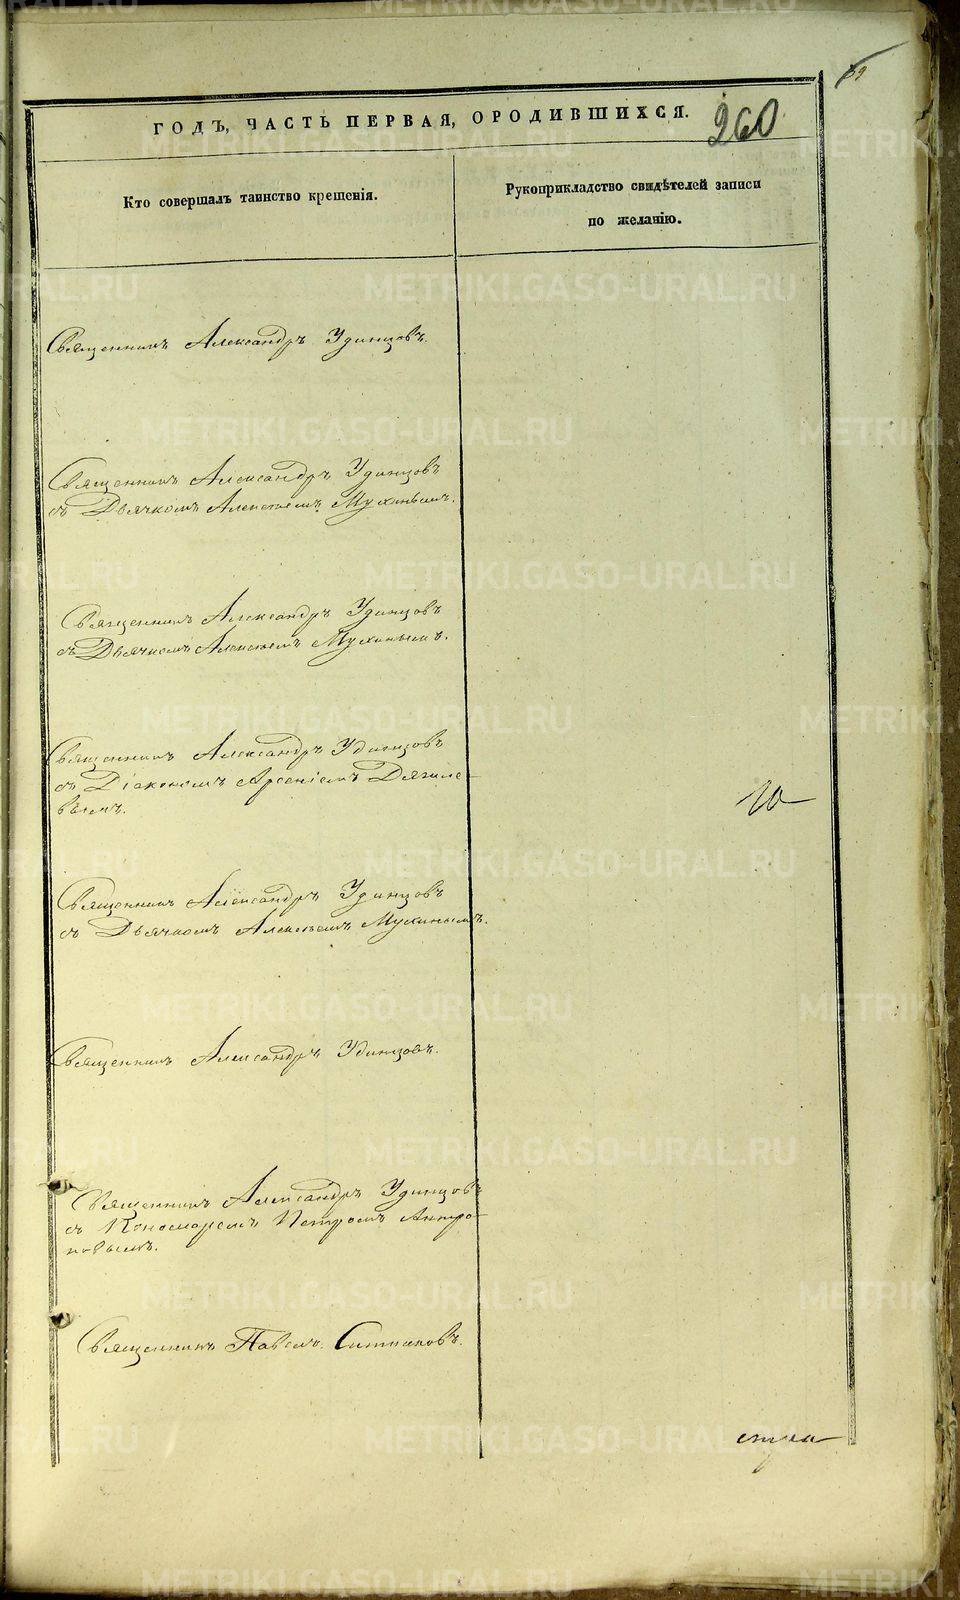 ГОДЪ, ЧАСТЬ ПЕРВАЯ, О РОДИВШИХСЯ.
260
Кто совершалъ таинство крещенія.
Рукоприкладство свидѣтелей записи
по желанію.
Священникъ Александръ Удинцовъ.
Священникъ Александръ Удинцовъ
съ Дьячкомъ Алексѣемъ Мухинымъ.
Священникъ Александръ Удинцовъ
съ Дьячкомъ Алексѣемъ Мухинымъ.
Священникъ Александръ Удинцовъ
съ Діакономъ Арсеніемъ Дягиле-
вымъ.
Священникъ Александръ Удинцовъ
съ Дьячкомъ Алексѣемъ Мухинымъ.
Священникъ Александръ Удинцовъ.
Священникъ Александръ Удинцовъ
съ Пономаремъ Петромъ Антро-
повымъ.
Священникъ Павелъ Ситниковъ.
METRIKI.GASO-URAL.RU